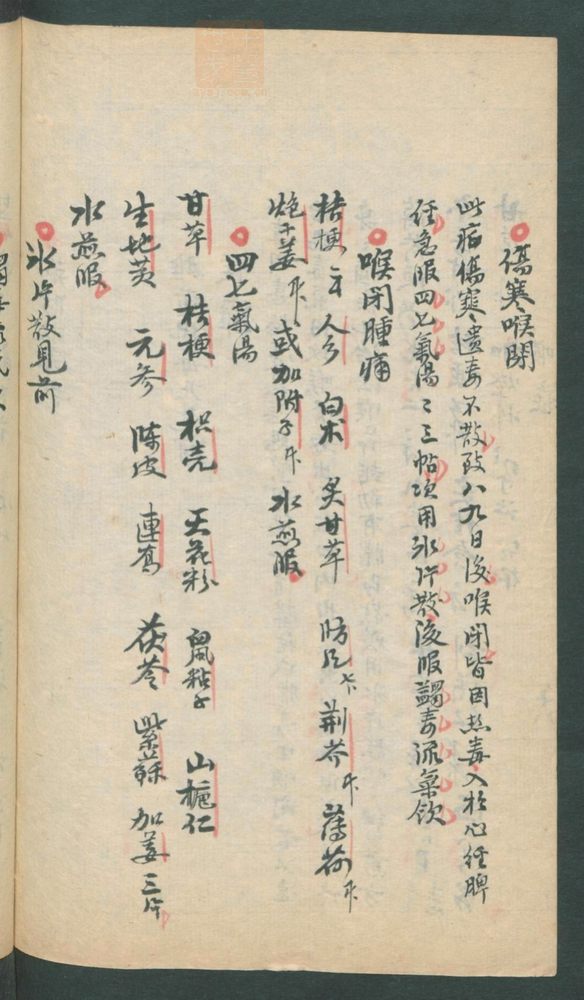 傷寒喉閉
此病傷寒遺毒不散致八九日後喉閉皆因热毒入於心经脾
经急服四七氣湯二三帖次用氷片散後服蠲毒流氣飲
喉閉腫痛
桔梗 人参 白术 炙甘草 防风 荆芥 薄荷
炮干姜 或加附子 水煎服
四七氣湯
甘草 桔梗 枳壳 天花粉 鼠粘子 山梔仁
生地黄 元参 陈皮 連翘 茯苓 紫蘇 加姜三片
水煎服
氷片散見前